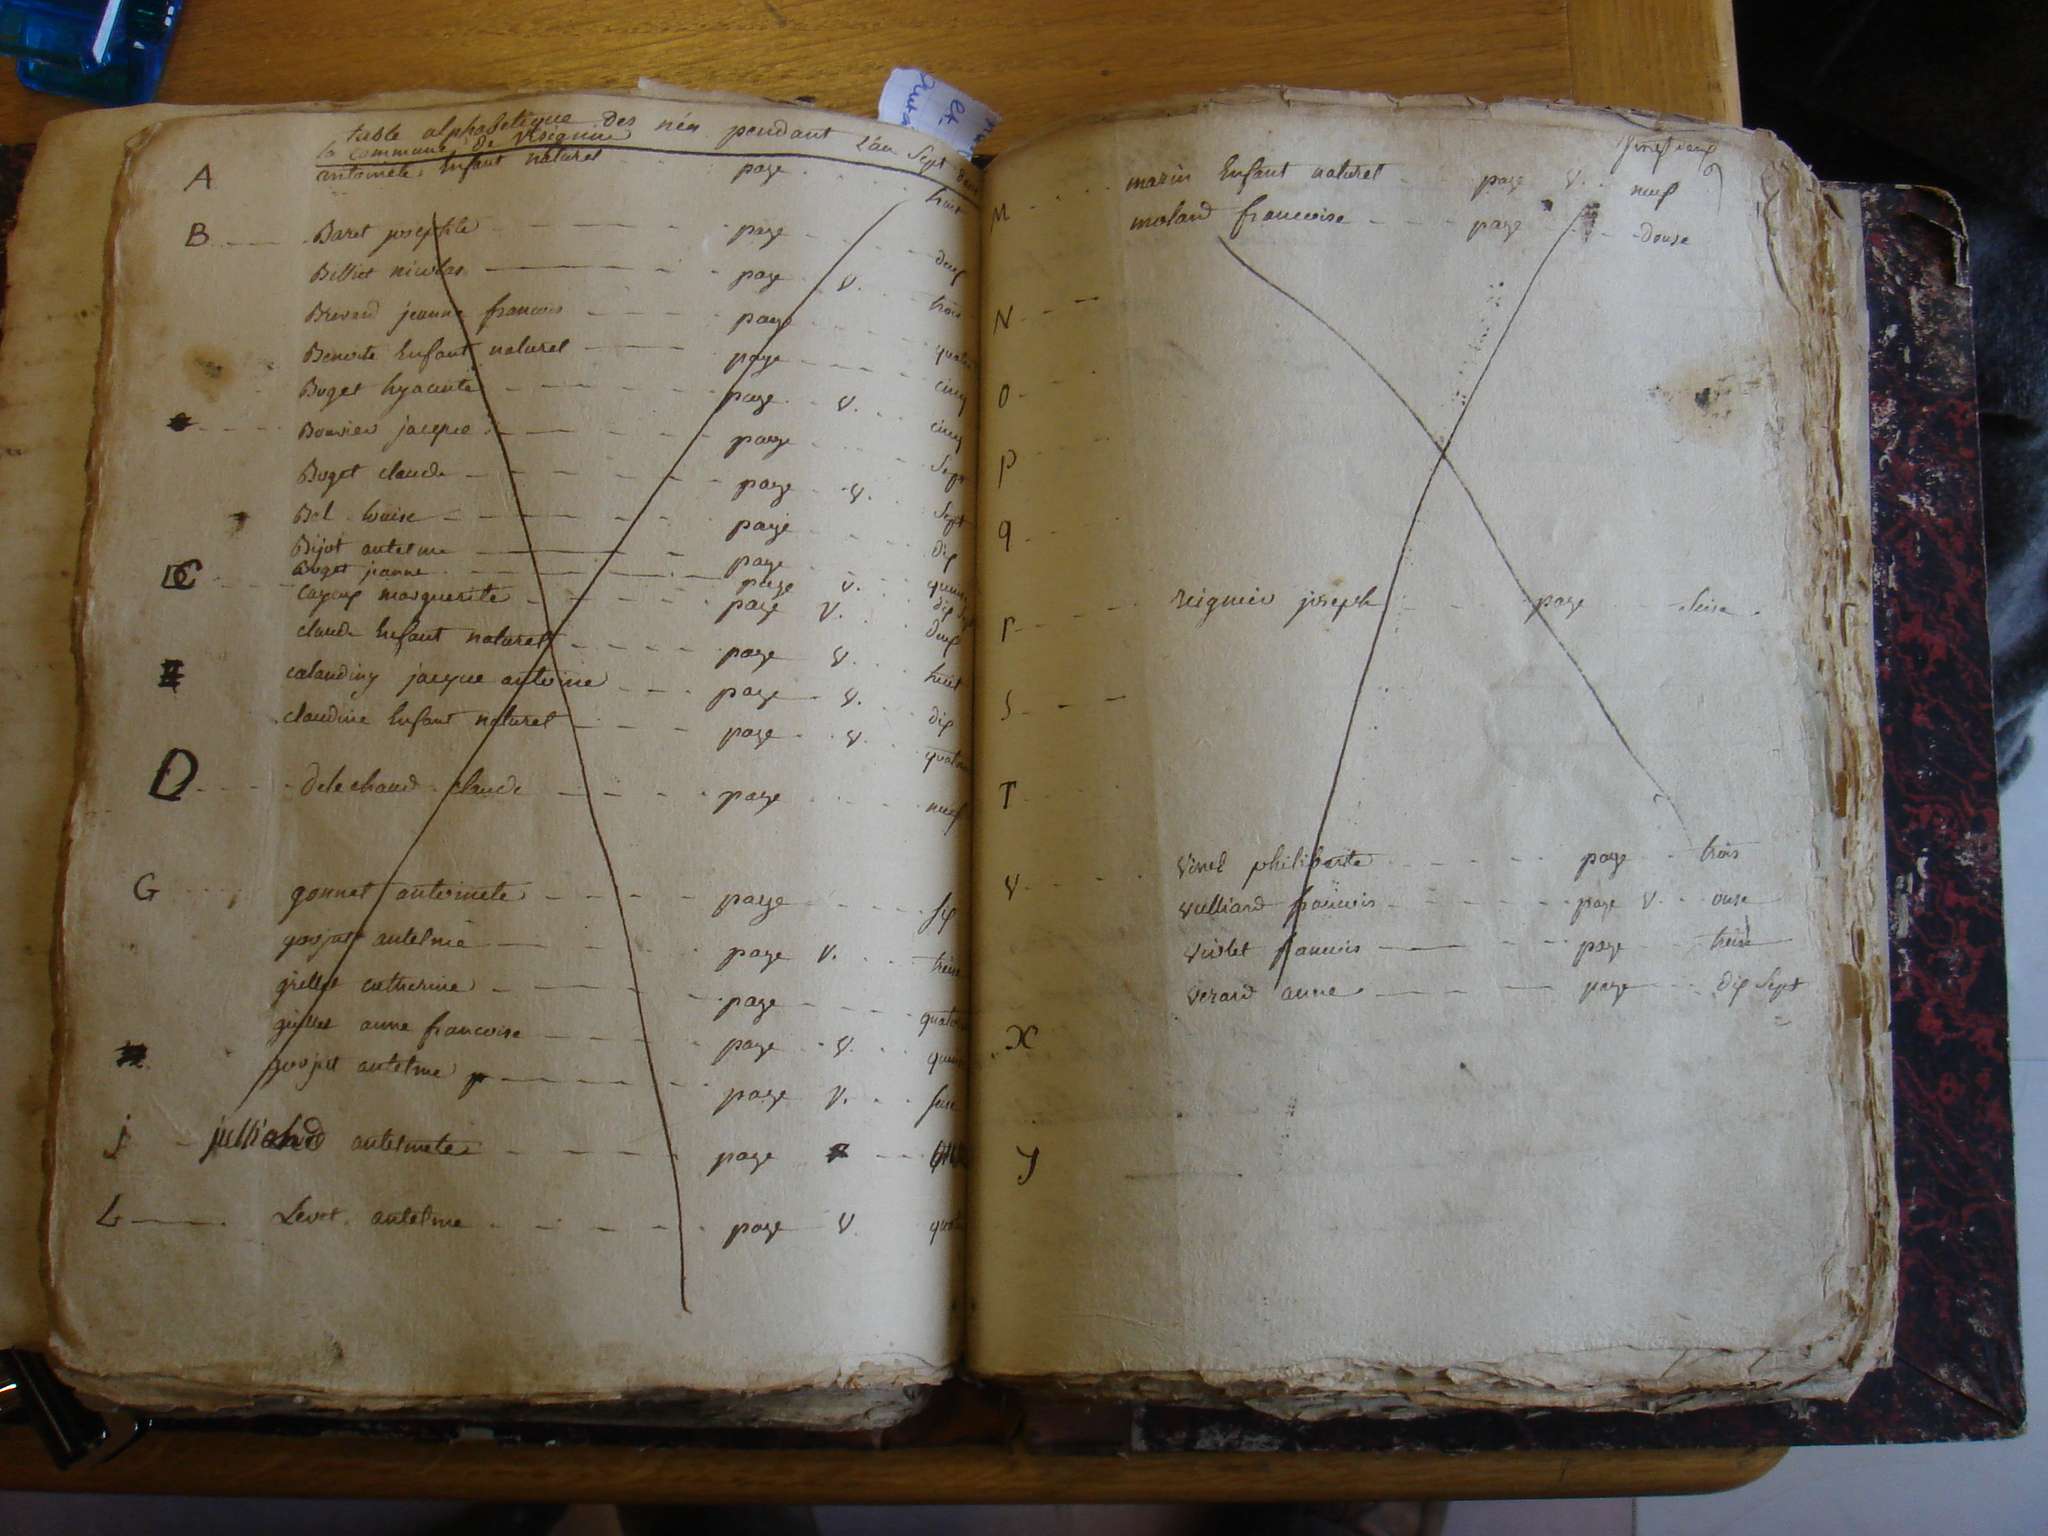 table alphabetique des nés pendant l'an sept dans
la commune de
A antoinete Enfant naturel page huit
B Baret josephte page deux
Billiet nicolas page v. trois
Brevand jeanne francois page quatre
Benoite Enfant naturel page cinq
Buget hyacinte page v. cinq
Bouvier jacque page Sept
Buget claude page v. Sept
Bel louise page dix
Bijot antelme page quinze
C Buget jeanne page v. dix Sept
marguerite page V. deux
claude Enfant naturel page v. huit
jacque antoine page v. dix
claudine Enfant naturel page v. quatorze
D delechaud claude page neuf
G gonnet antoinete page six
goujat antelme page v. treize
grillet catherine page quatorze
grillet anne francoise page v. quinze
goujat antelme page v.
j julliand antelmete page
L Levet antelme page v.
vingt deux
M marin Enfant naturel page v. neuf
molard francoise page douse
N
O
P
q
r reignier joseph page seise
S
T
V vinel philiberte page trois
vulliard francois page v. onse
violet francois page treise
verard anne page dix Sept
X
Y